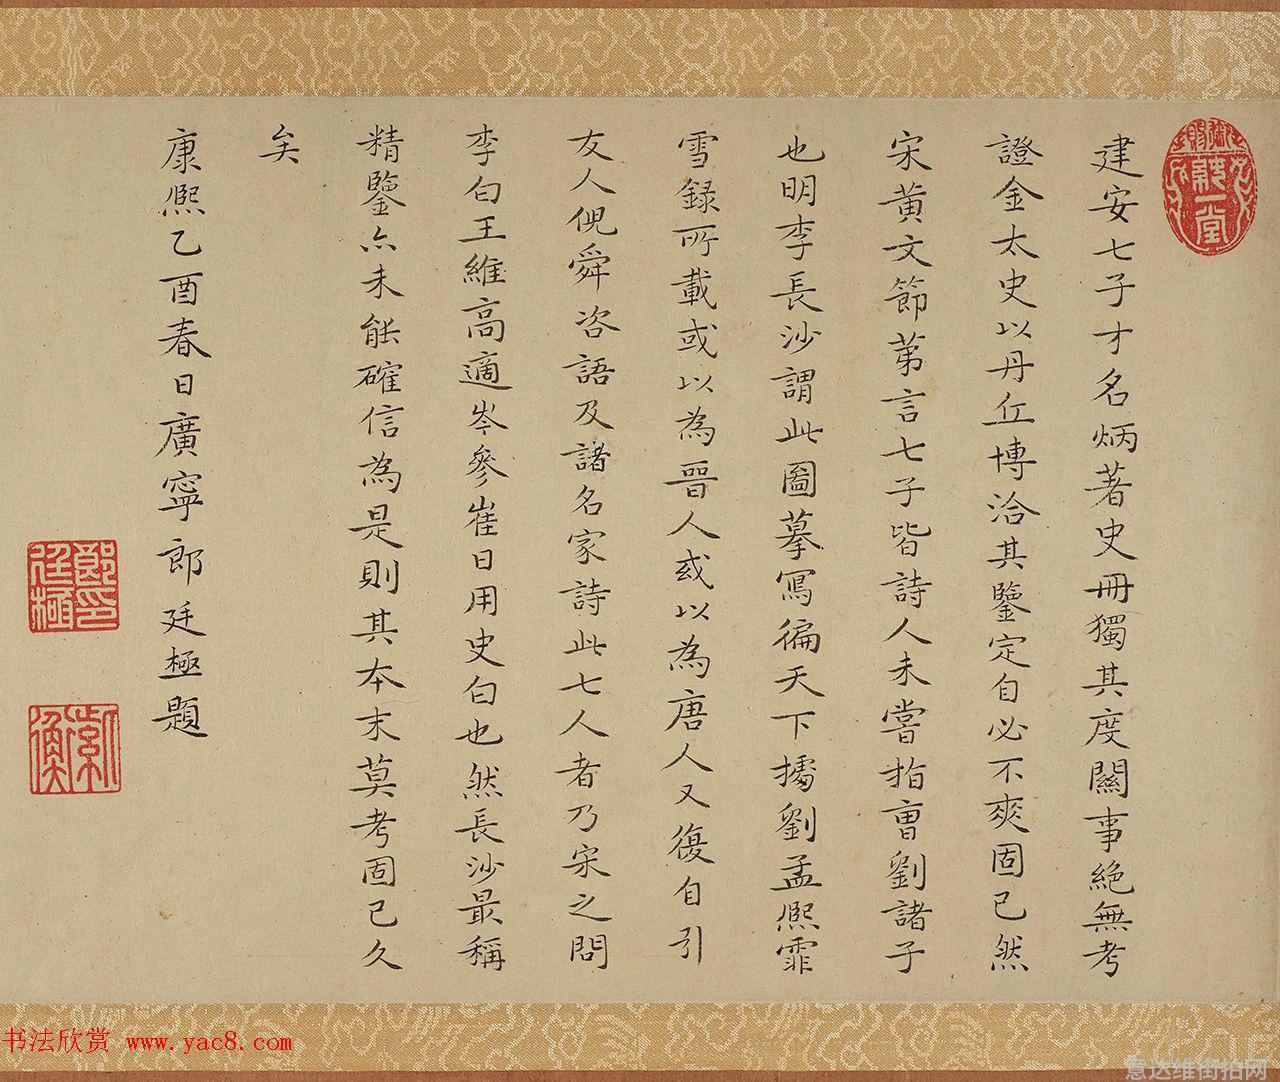 建安七子才名炳著史冊獨其度關事絶無考
證金太史以丹丘博洽其鑒定自必不爽固已然
宋黄文節第言七子皆詩人未嘗指曹劉諸子
也明李長沙謂此圖摹寫徧天下據劉孟熙霏
雪録所載或以為晉人或以為唐人又復自引
友人倪舜咨語及諸名家詩此七人者乃宋之問
李白王維高適岑參崔日用史白也然長沙最稱
精鑒亦未能確信為是則其本末莫考固已久
矣
康熙乙酉春日廣寧郎廷極題
郎印廷極
紫衡
书法欣赏 www.yac8.com
意达维街拍网